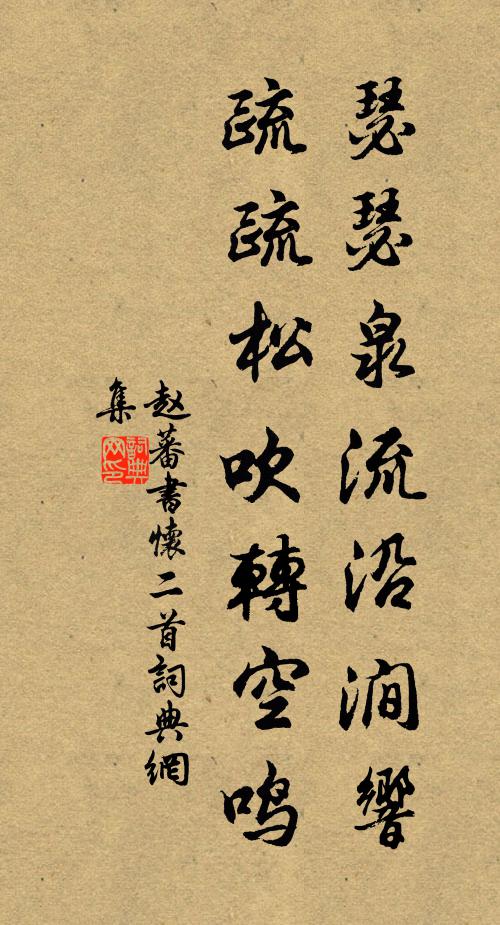 瑟瑟泉流沿澗響
疏疏松吹轉空鳴
赵蕃書懷二首詞典網
集
詞典
网印